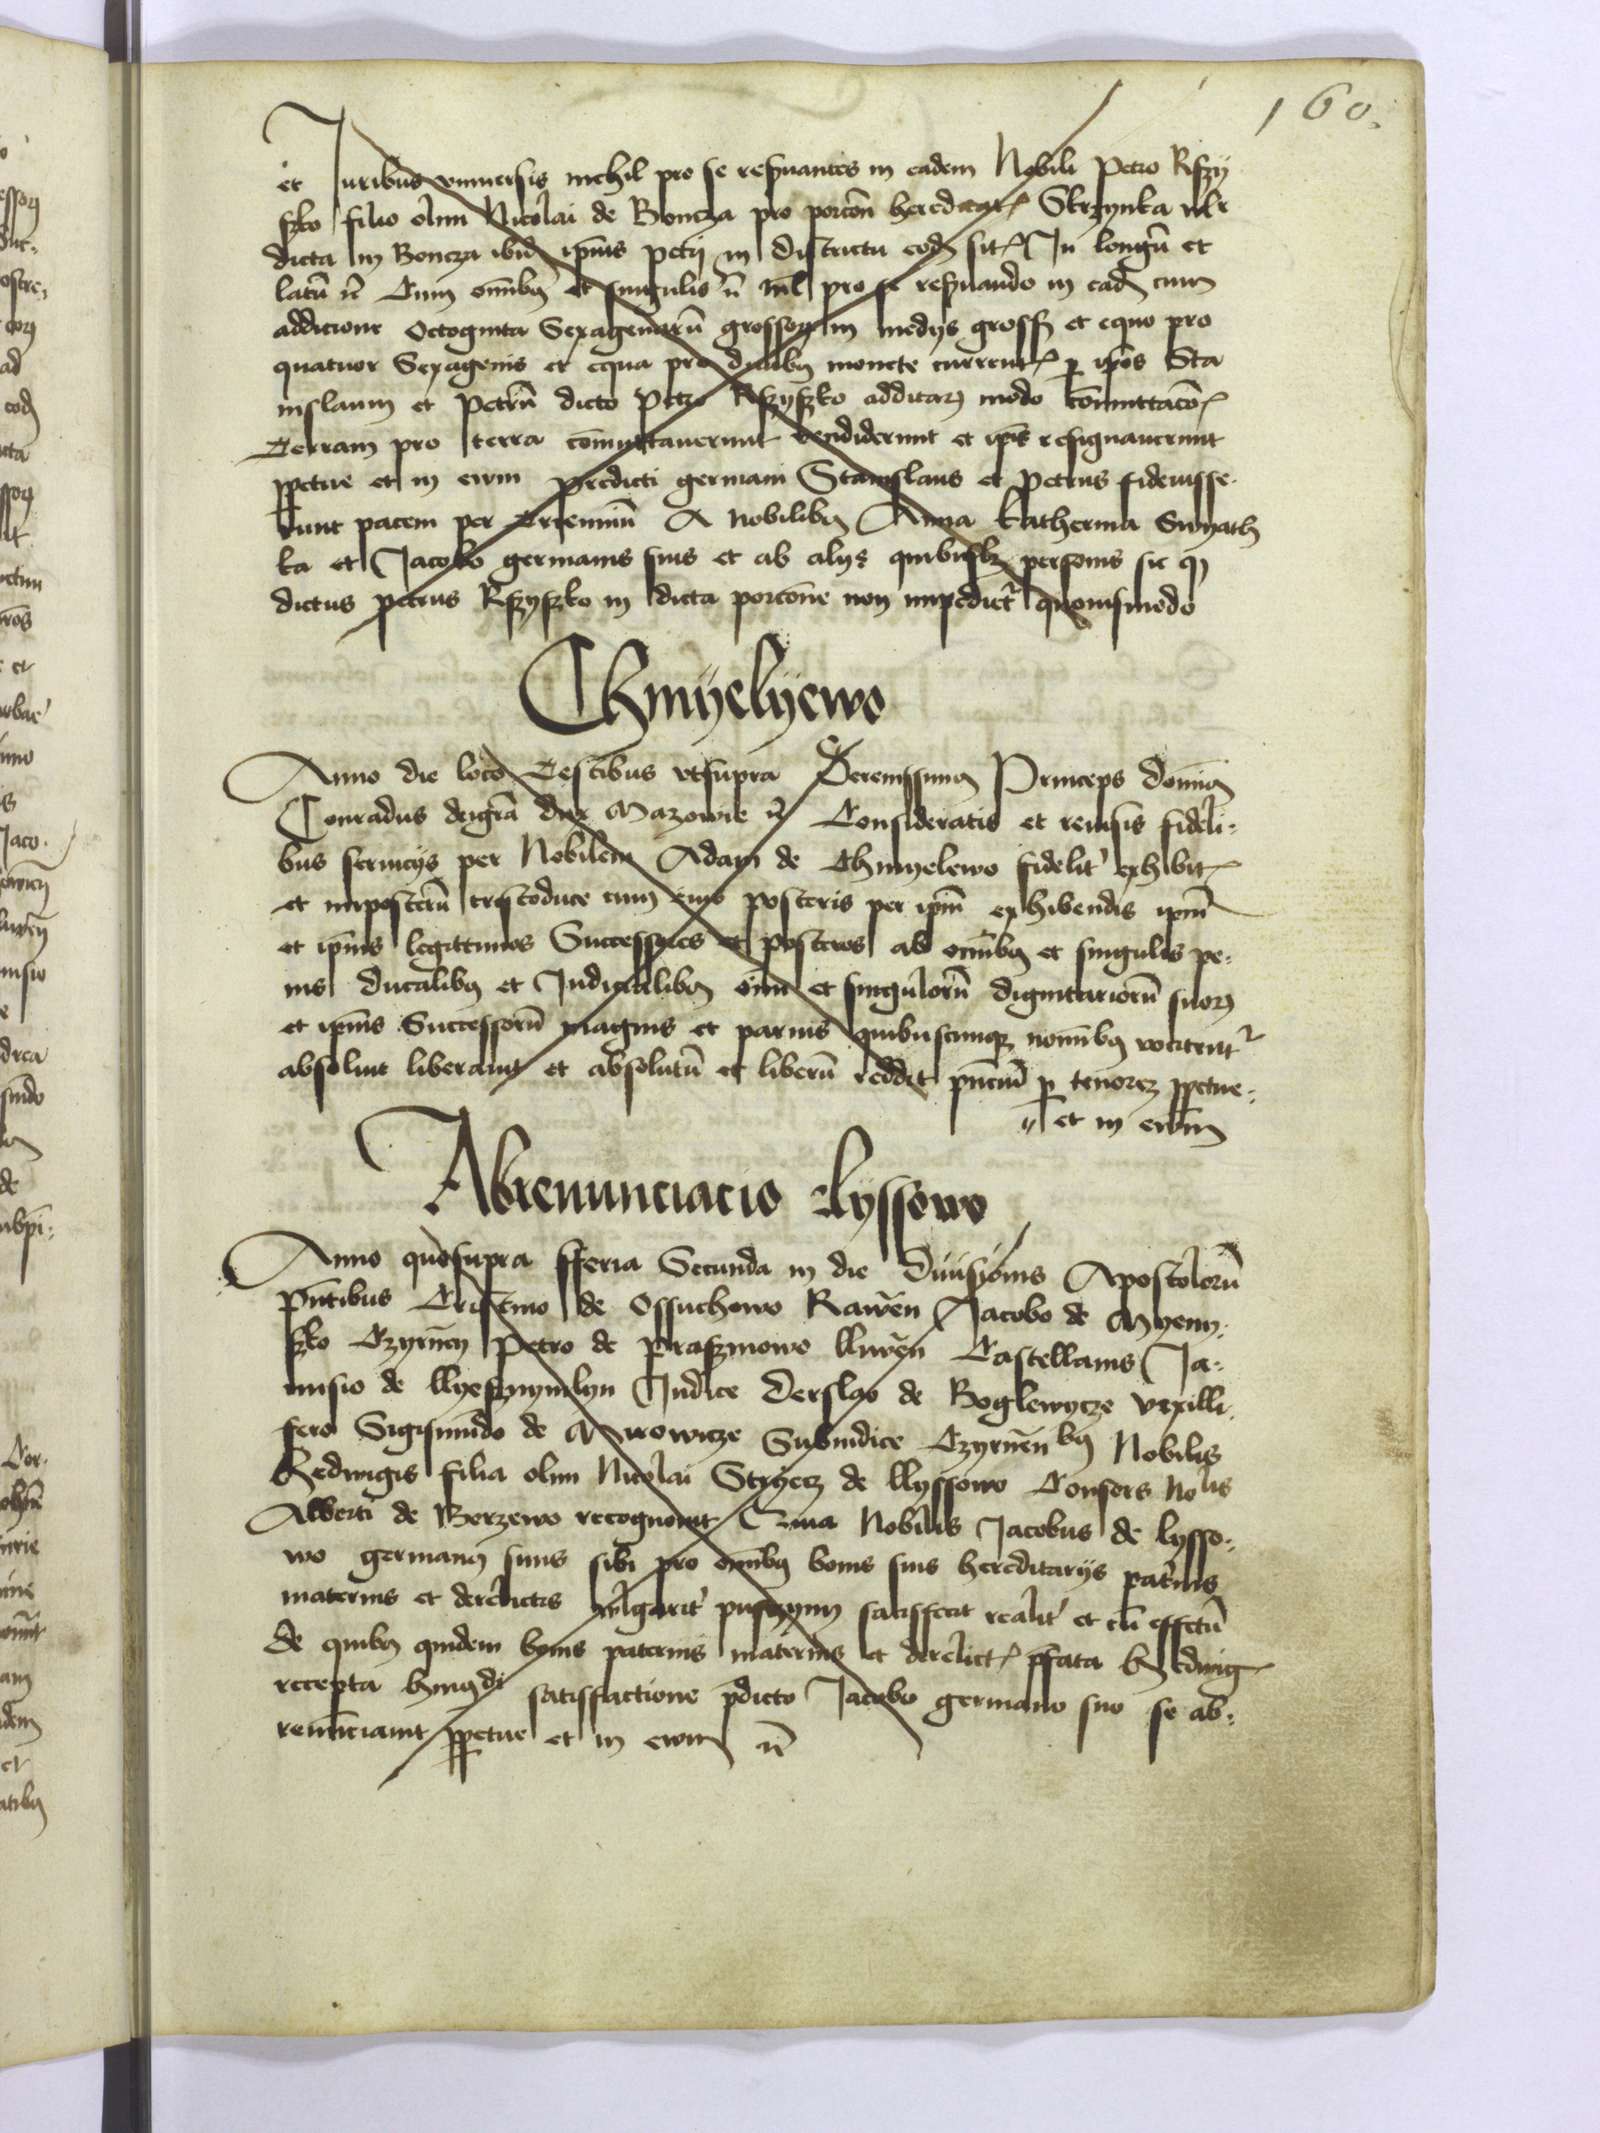 160.
et Juribus universis nichil pro se reservantes in eadem Nobili Petro Rszy
szko filio olim Nicolai de Boncza pro porcoe hereditar Skrzynka vlr
dicta in Boncza ibid ipius petri in districtu eod sit In longu et
latu etc Cum omibus et singulis etc nil pro se reservando in ead cum
addicione Octoginta Sexagenaru grossorum in medys gross et equo pro
quatuor Sexagenis et equa pro duabus monete current p ipos Sta
nislaum et Petru dicto Petro Rszyszko additarum modo comuttacoe
Terram pro terra comuttaverunt vendiderunt et ipi resignaverunt
ppetue et in evum predicti germani Stanislaus et Petrus fideiusse-
runt pacem per trienniu A nobilibus Anna Katherina Swyath
ka et Jacobo germanis suis et ab alys quibuslibet personis sic quod
dictus petrus Rszyszko in dicta porcone non impediet quovismodo
Chmyelyewo
Anno die loco Testibus utsupra Serenissimus Princeps dominus
Conradus deigra dux Mazovie etc Consideratis et revisis fideli-
bus serviciis per Nobilem Adam de Chmyelewo fidelit exhibit
et imposteru cum eius posteris per ipm exhibendis ipm
et ipius legittimos Successores et posteros ab omibus et singulis pe-
nis ducalibus et Judicialibus oim et singuloru dignitarioru suorum
et ipius Successoru magnis et parvis quibuscunque nomibus vocitent
absolvit liberavit et absolutu et liberu reddit pnciu p tenorem ppetue
et in evum
Abrenunciacio Lyssowo
Anno quosupra fferia Secunda in die Divisionis Apostoloru
pntibus Cristino de Ossuchowo Rawen Jacobo de Myeny-
szko Czyrnen Petro de Praszmowo lliven Castellanis Ja-
nusio de llyesznymlyn Judice Derslao de Boglewycze vexilli-
fero Sigismundo de Mirowicze Subiudice Czyrnen bus Nobilis
Hedwigis filia olim Nicolai Stryecz de llyssowo Consors Nolis
Alberti de Borzewo recognovit Quia Nobilis Jacobus de lysso-
wo germanus suus sibi pro omibus bonis suis hereditariis patnis
maternis et derelictis wlgarit puscyny satisfecit realit et cu effctu
de quibus quidem bonis paternis maternis et derelict pfata hedwig
recepta hmoi satisfactione pdicto Jacobo germano suo se ab-
renuciavit ppetue et in evum etc